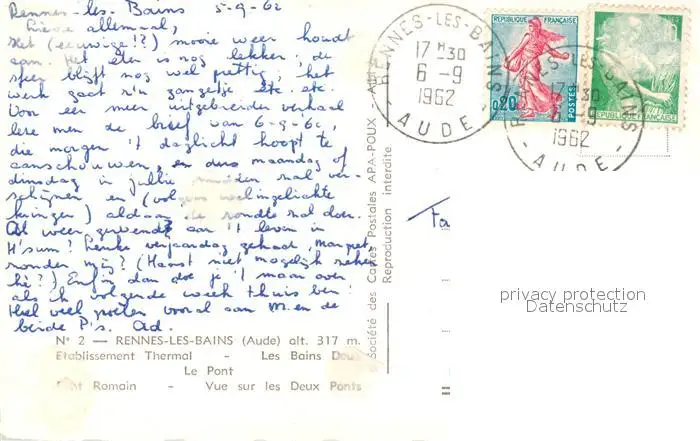 Rennes-les-Bains 5-9-62
Lieve allemaal,
Het (eeuwige!?) mooie weer houdt
aan. Het eten is nog lekker, de
sfeer blijft nog wel prettig, het
werk gaat z'n gangetje etc. etc.
Voor een meer uitgebreider verhaal
leze men de brief van 6-9-62,
die morgen 't daglicht hoopt te
aanschouwen, en dus maandag of
dinsdag in jullie zal ver-
schijnen en (volgens welingelichte
kringen) aldaar de rondte zal doen.
Al weer gewend aan 't leven in
H'sum? Leuke verjaardag gehad, Margreet,
zonder mij? (Haast niet mogelijk zeker
hè?) Enfin dan doe je 't maar over
als ik volgende week thuis ben.
Heel veel groeten vooral aan M. en de
beide P's. Ad.
N° 2 — RENNES-LES-BAINS (Aude) alt. 317 m.
Etablissement Thermal - Les Bains Doux
Le Pont
Romain - Vue sur les Deux Ponts
Société des Cartes Postales APA-POUX -
Reproduction interdite
RENNES-LES-BAINS
17 H 30
6 -9
1962
- AUDE -
REPUBLIQUE FRANÇAISE
0,20
POSTES
RENNES-LES-BAINS
17 H 30
6 -9
1962
- AUDE -
REPUBLIQUE FRANÇAISE
Fa
privacy protection
Datenschutz